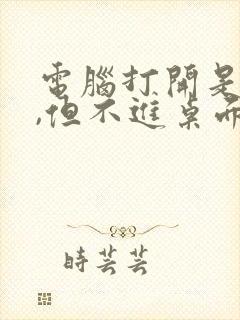 電腦打開是
,但不進桌面
時芸芸